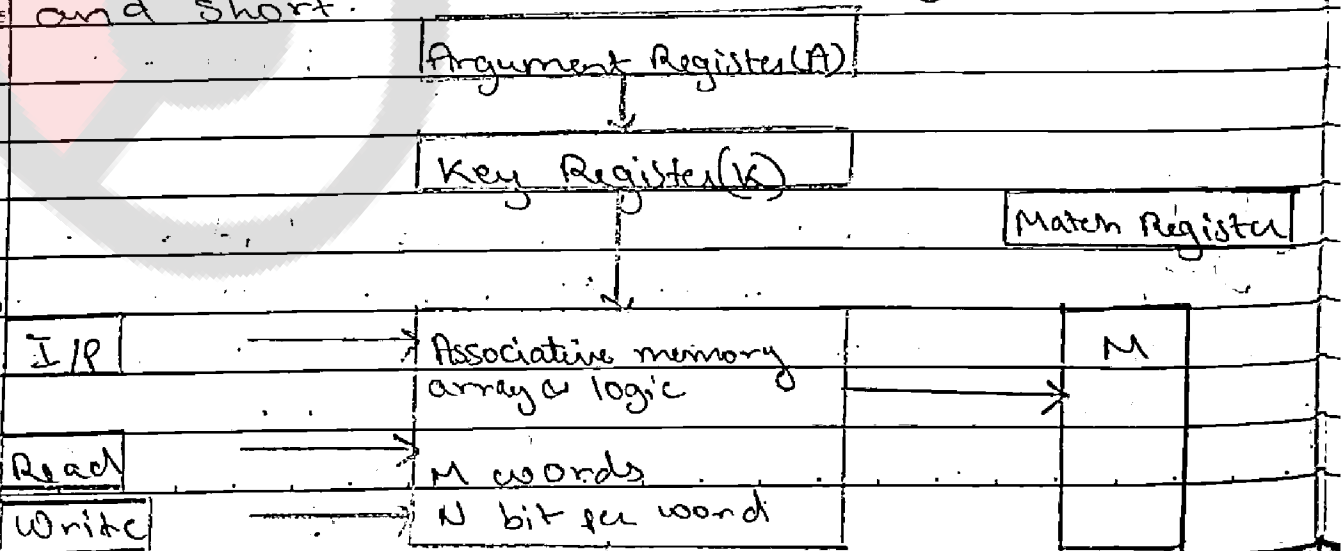 and short.
Argument Register(A)
Key Register(K)
Match Register
I/P
Associative memory
array & logic
M
Read
M words
Write
N bit per word